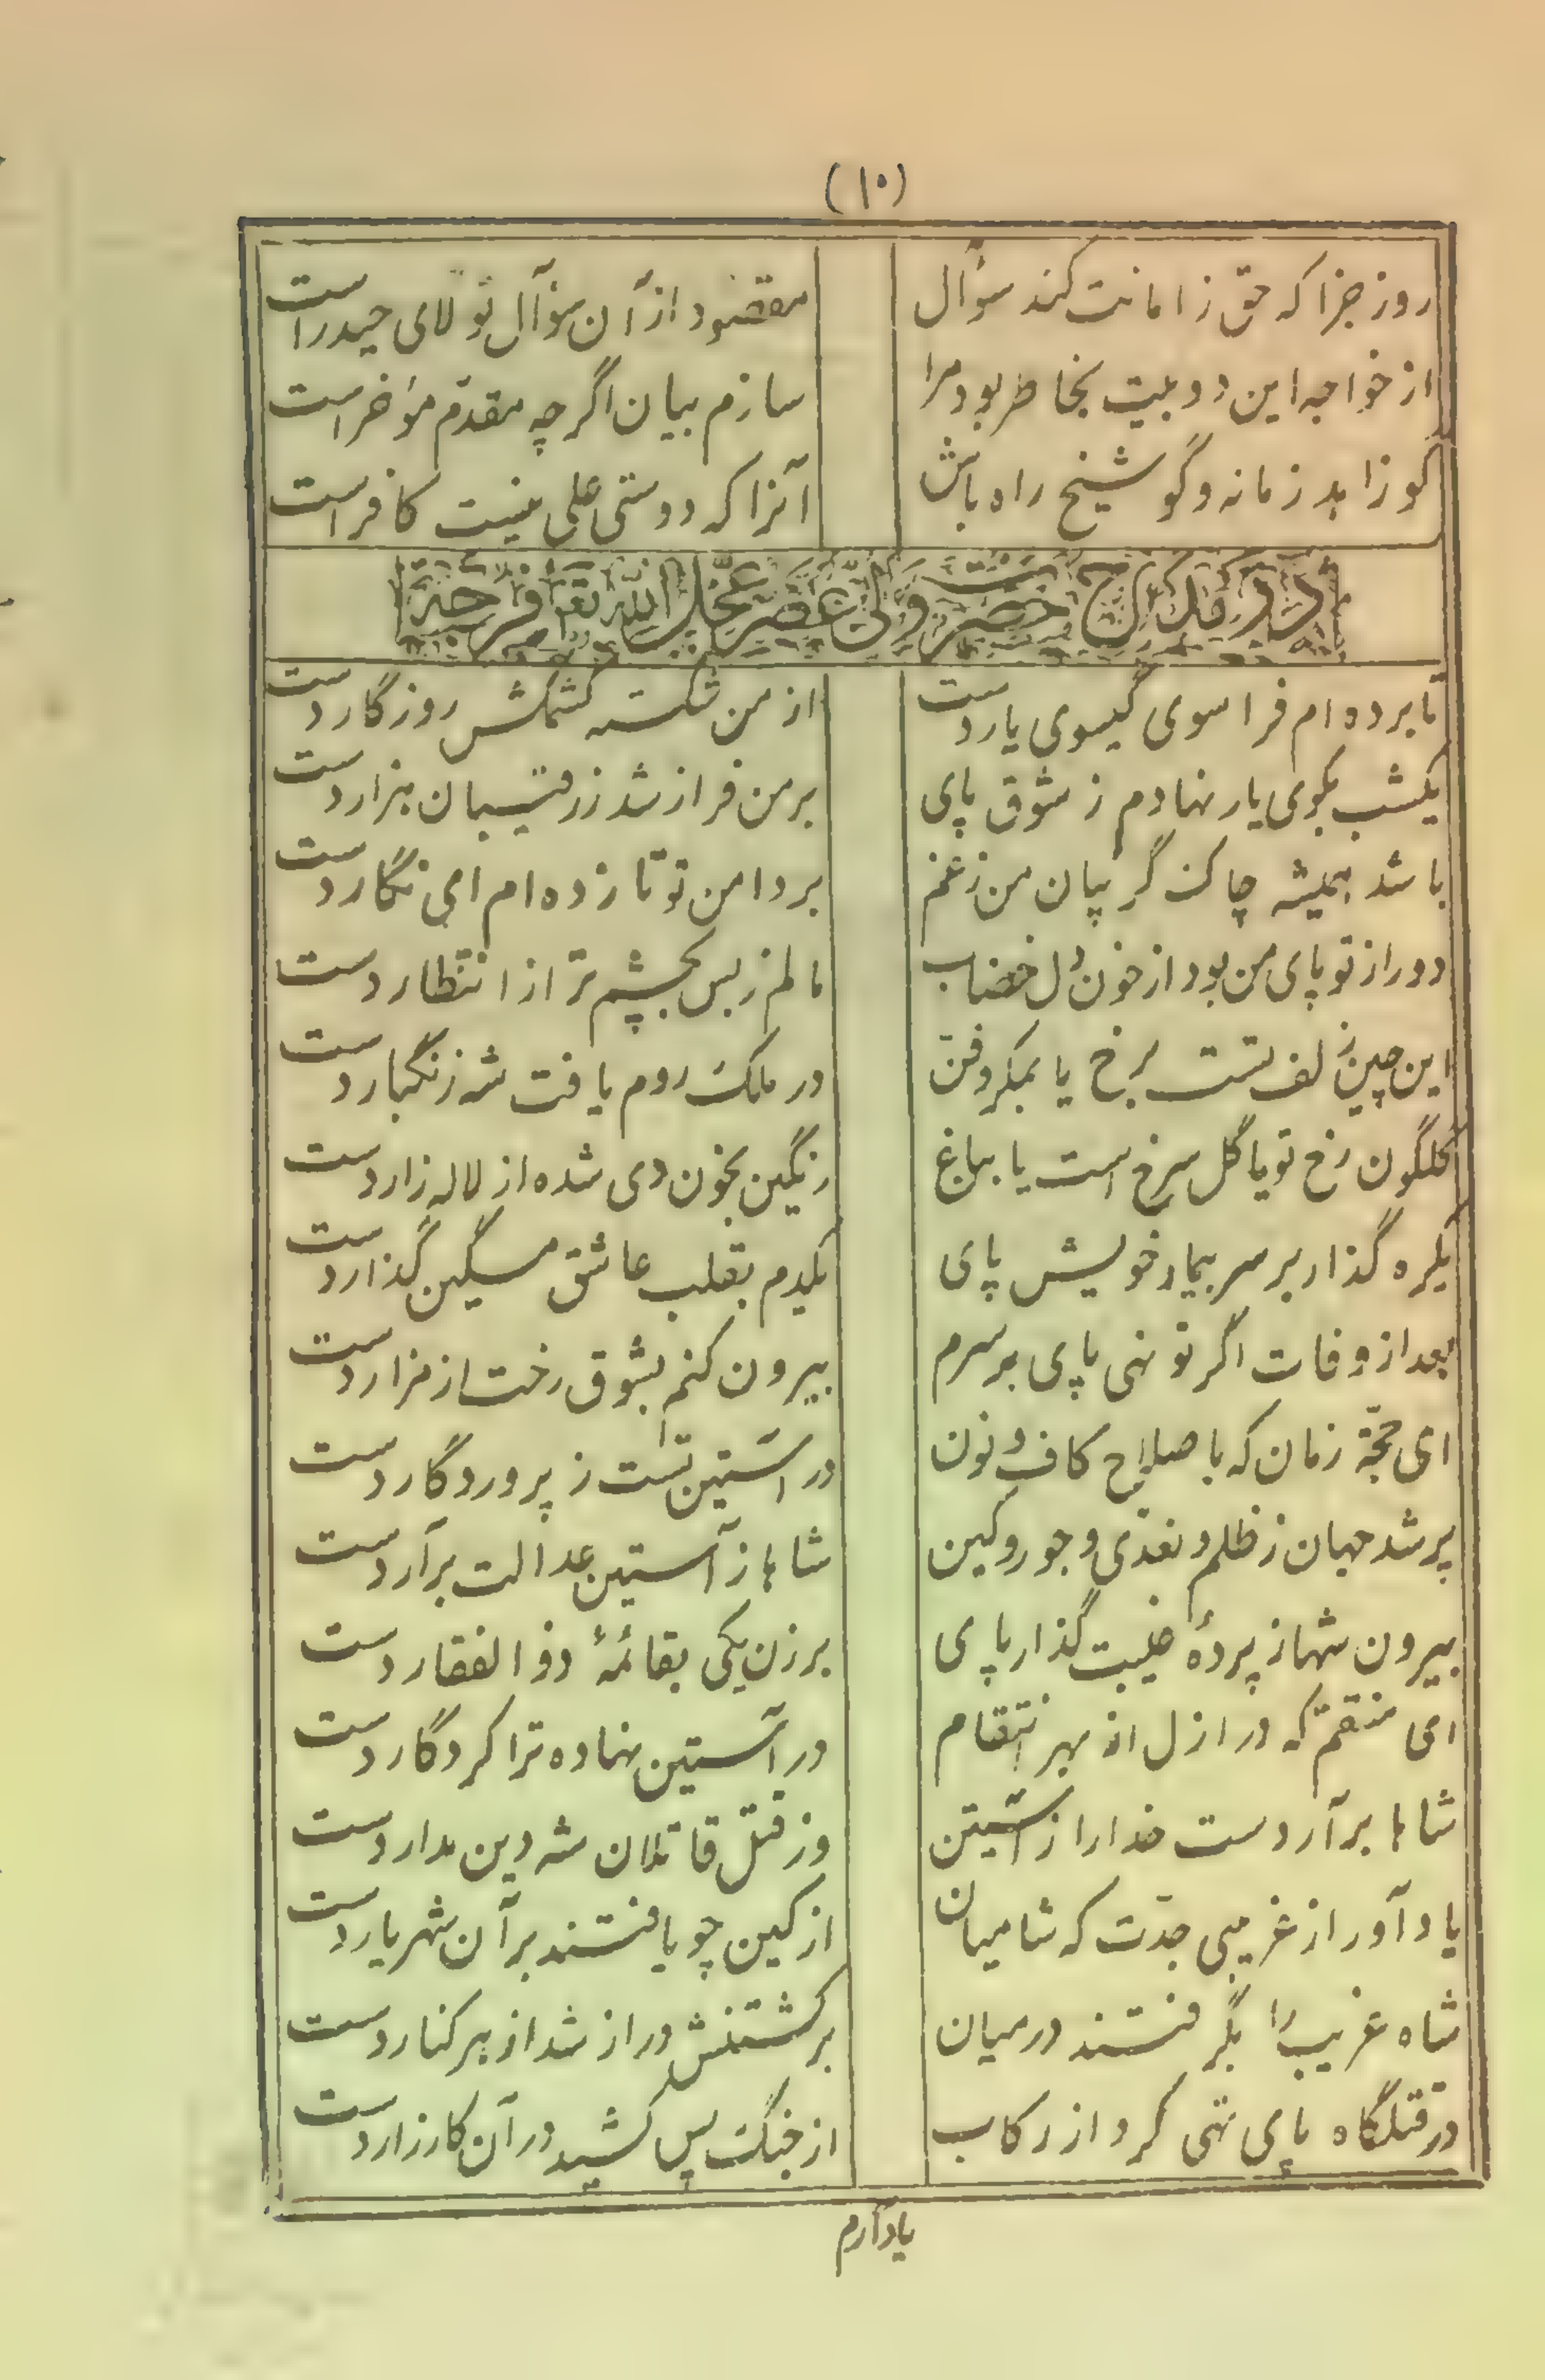 (۱۰)
روز جزا که حق ز امانت کند سؤال مقصود از آن سؤآل تولای حیدر است
از خواجه این دو بیت بخاطر بود مرا سازم بیان اگرچه مقدّم مؤخر است
کو زاهد زمانه و گو شیخ راه باش آنرا که دوستی علی نیست کافر است
در مدح حضرت ولی عصر عجّل الله تعالی فرجه
تا برده‌ام فرا سوی گیسوی یار دست از من شکسته کشمکش روزگار دست
یکشب بکوی یار نهادم ز شوق پای بر من فراز شد ز رقیبان هزار دست
باشد همیشه چاک گریبان من ز غم بر دامن تو تا زده‌ام ای نگار دست
دور از تو پای من بود از خون دل خضاب مالم ز بس بچشم تر از انتظار دست
این چین زلف تست برخ یا بمکر و فن در ملک روم یافت شه زنگبار دست
گلگون رخ تو یا گل سرخ است یا بباغ رنگین بخون دی شده از لاله زار دست
یکره گذار بر سر بیمار خویش پای یکدم بقلب عاشق مسکین گذار دست
بعد از وفات اگر تو نهی پای بر سرم بیرون کنم بشوق رخت از مزار دست
ای حجّة زمان که با صلاح کاف و نون در آستین تست ز پروردگار دست
پر شد جهان ز ظلم و تعدّی و جور و کین شاها ز آستین عدالت برآر دست
بیرون شها ز پردهٔ غیبت گذار پای برزن یکی بقائمهٔ ذوالفقار دست
ای منتقم که در ازل از بهر انتقام در آستین نهاده ترا کردگار دست
شاها برآر دست خدا را ز آستین وز قتل قاتلان شه دین مدار دست
یاد آور از غریبی جدّت که شامیان از کین چو یافتند بر آن شهریار دست
شاه غریب را بگرفتند در میان بر کشتنش دراز شد از هر کنار دست
در قتلگاه پای تهی کرد از رکاب از جنگ پس کشید در آن کارزار دست
یاد آرم